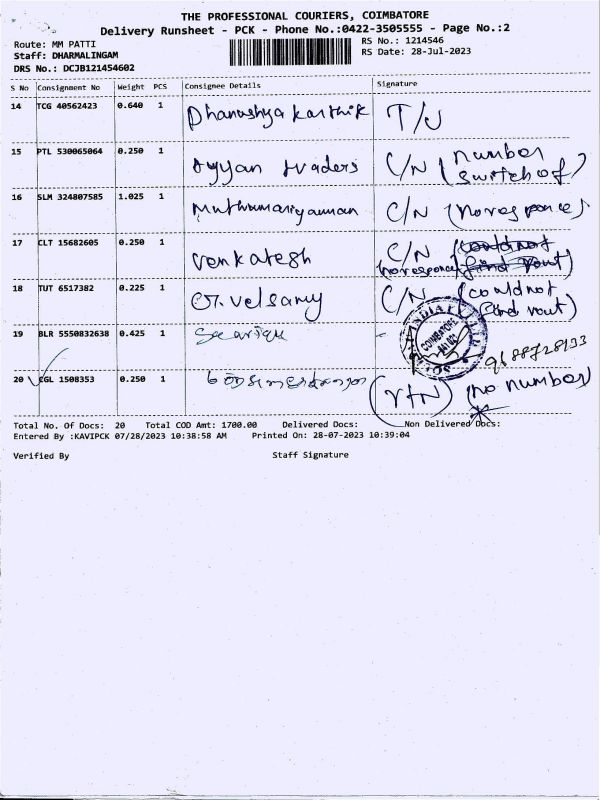 THE PROFESSIONAL COURIERS, COIMBATORE
Delivery Runsheet - PCK - Phone No.:0422-3505555 - Page No.:2
Route: MM PATTI
RS No.: 1214546
Staff: DHARMALINGAM
RS Date: 28-Jul-2023
DRS No.: DCJB121454602
S No Consignment No Weight PCS Consignee Details Signature
14 TCG 40562423 0.640 1 Dhanushya karthik T/J
15 PTL 530065064 0.250 1 Ayyan traders C/N (number
switch of)
16 SLM 324807585 1.025 1 Muthumariyamman C/N (no response)
17 CLT 15682605 0.250 1 venkatesh C/N (could not
(no response) find rout)
18 TUT 6517382 0.225 1 velsamy C/N (could not
find rout)
19 BLR 5550832638 0.425 1
COIMBATORE
9688728133
20 CGL 1508353 0.250 1 (no number)
Total No. Of Docs: 20 Total COD Amt: 1700.00 Delivered Docs: Non Delivered Docs:
Entered By :KAVIPCK 07/28/2023 10:38:58 AM Printed On: 28-07-2023 10:39:04
Verified By Staff Signature